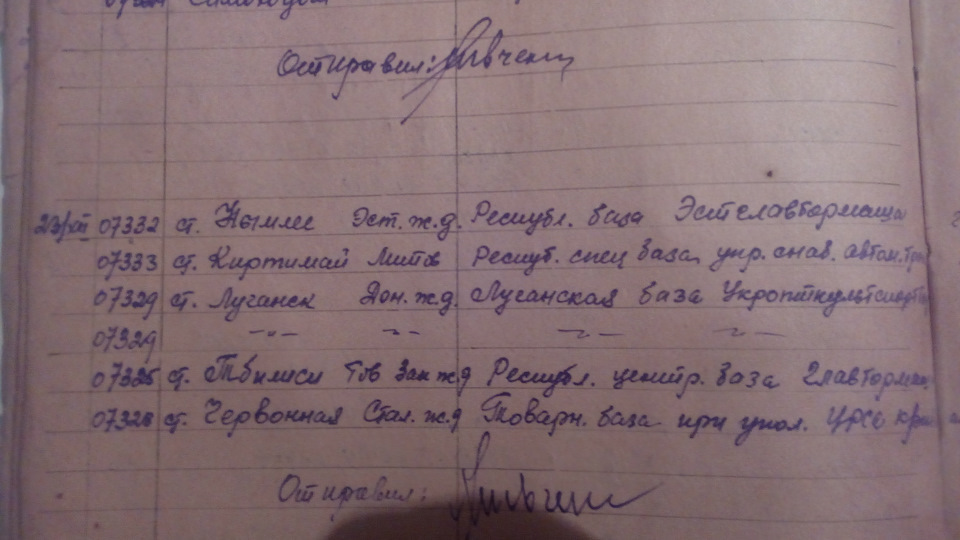 Отправил:
07332 ст. Нымме Эст. ж.д. Республ. база Эстглавторгмаша
07333 ст. Киртимай Литов Респуб. спец база упр. снаб. автом.
07329 ст. Луганск Дон. ж.д. Луганская база
07329 -"- -"- -"- -"-
07325 ст. Тбилиси Тов Зак ж.д Республ. центр. база Главторгмаш
07328 ст. Червонная Стал. ж.д Товарн. база при упол.
Отправил: